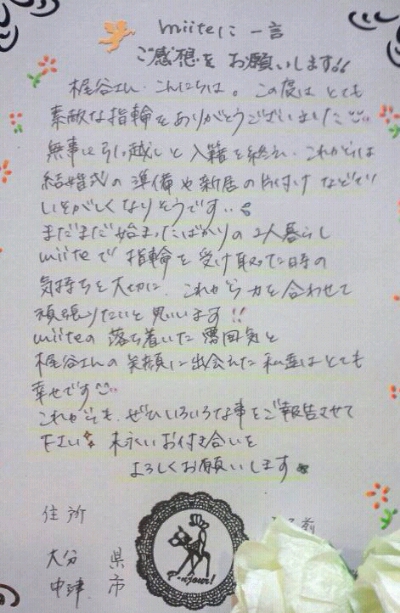 miiteに一言
ご感想をお願いします!!
梶谷さん、こんにちは。この度はとても
素敵な指輪をありがとうございました
無事に引っ越しと入籍を終え、これからは
結婚式の準備や新居の片付けなどで
いそがしくなりそうです。
まだまだ始まったばかりの2人暮らし
miiteで指輪を受け取った日の
気持ちを大切に、これから力を合わせて
頑張りたいと思います!!
miiteの落ち着いた雰囲気と
梶谷さんの笑顔に出会えた私達はとても
幸せです
これからも、ぜひいろいろな事をご報告させて
下さい 末永いお付き合いを
よろしくお願いします
住所
大分 県
中津 市
Bonjour!